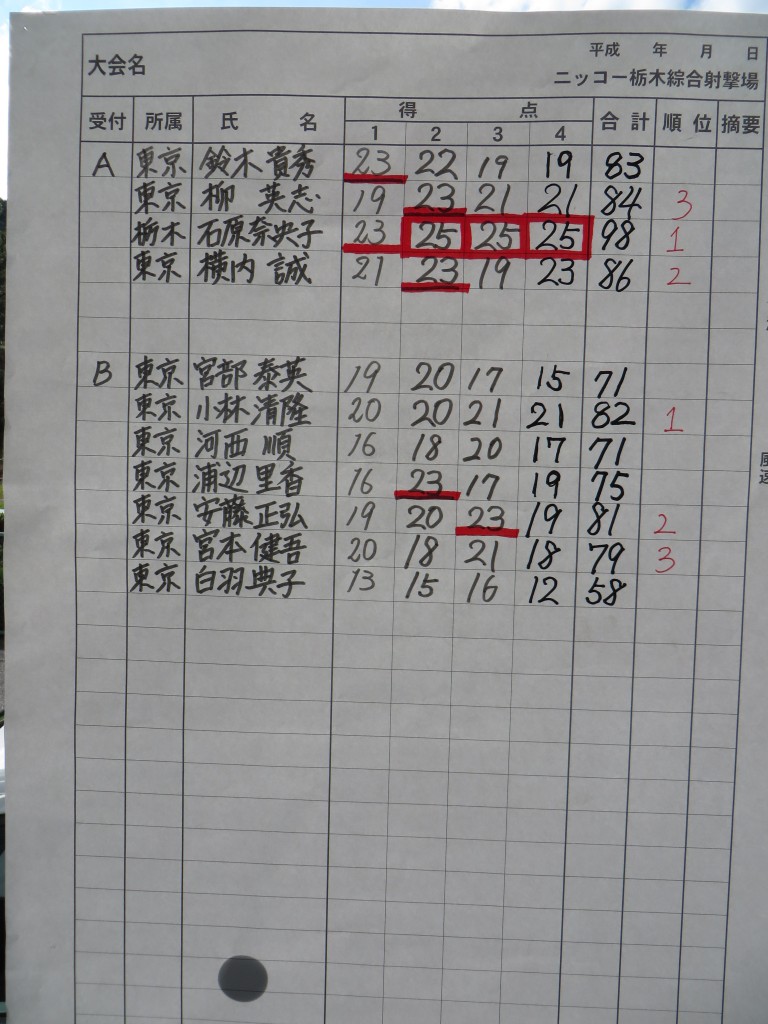 平成 年 月 日
大会名 ニッコー栃木綜合射撃場
受付 所属 氏 名 得 点 合計 順位 摘要
1 2 3 4
A 東京 鈴木貴秀 23 22 19 19 83
東京 柳 英志 19 23 21 21 84 3
栃木 石原奈央子 23 25 25 25 98 1
東京 横内 誠 21 23 19 23 86 2
B 東京 宮部泰英 19 20 17 15 71
東京 小林清隆 20 20 21 21 82 1
東京 河西 順 16 18 20 17 71
東京 浦辺里香 16 23 17 19 75
東京 安藤正弘 19 20 23 19 81 2
東京 宮本健吾 20 18 21 18 79 3
東京 白羽典子 13 15 16 12 58